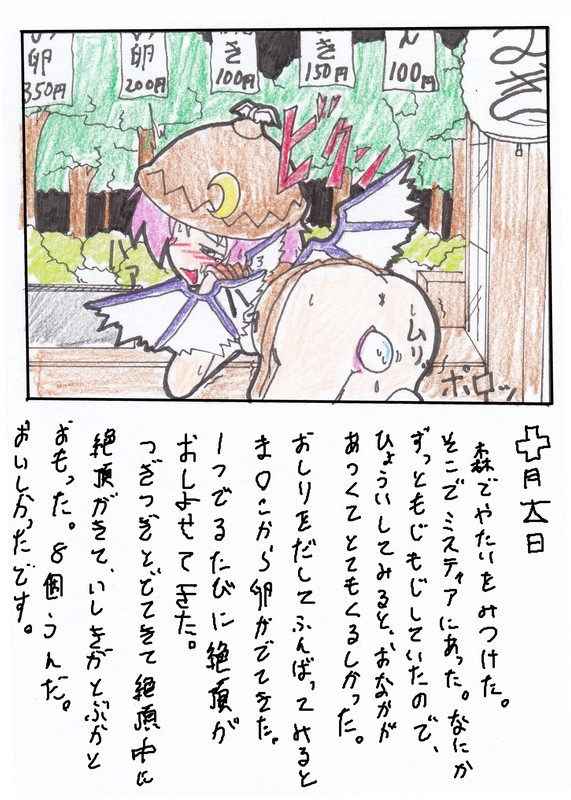 卵
350円
卵
200円
き
100円
き
150円
ん
100円
ビクン
ハァ
ムリッ
ポロッ
十月六日
森でやたいをみつけた。
そこでミスティアにあった。なにか
ずっともじもじしていたので、
ひょういしてみると、おなかが
あつくてとてもくるしかった。
おしりをだしてふんばってみると
ま〇こから卵がでてきた。
1つでるたびに絶頂が
おしよせてきた。
つぎつぎとでてきて絶頂中に
絶頂がきて、いしきがとぶかと
おもった。8個うんだ。
おいしかったです。